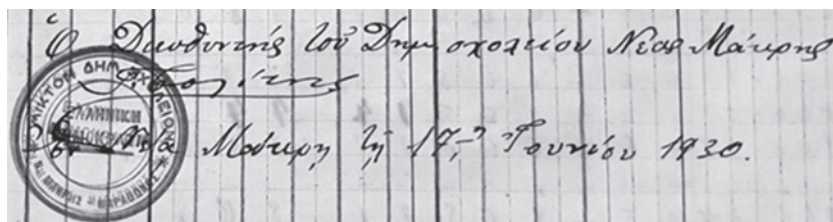 Ὁ Διευθυντής τοῦ Δημ σχολείου Νέας Μάκρης
Ἐν Νέᾳ Μάκρῃ τῇ 17ῃ Ἰουνίου 1930.
ΜΙΚΤΟΝ ΔΗΜ. ΣΧΟΛΕΙΟΝ
ΕΛΛΗΝΙΚΗ
ΜΑΡΑΘΩΝΟΣ